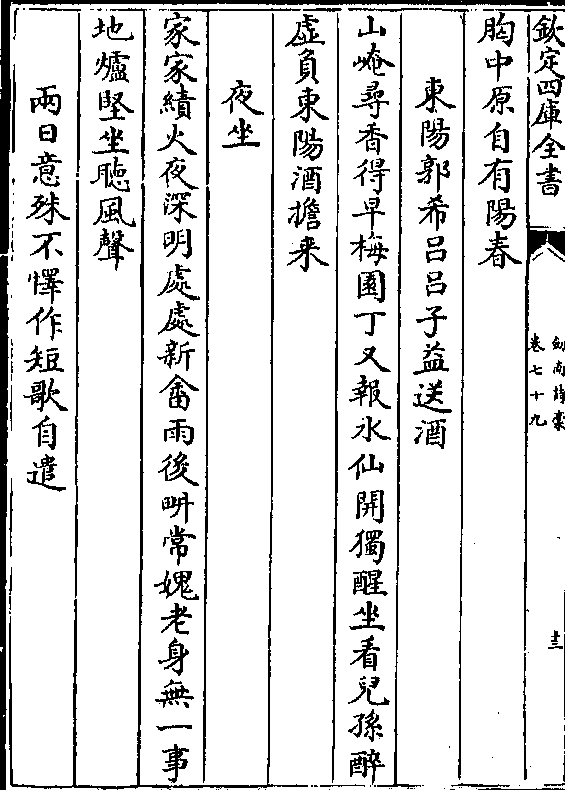 欽定四庫全書
劍南詩藁
卷七十九
十三
胸中原自有陽春
東陽郭希呂呂子益送酒
山崦尋香得早梅園丁又報水仙開獨醒坐看兒孫醉
虛負東陽酒擔来
夜坐
家家績火夜深明處處新畬雨後畊常媿老身無一事
地爐堅坐聴風聲
兩日意殊不懌作短歌自遣